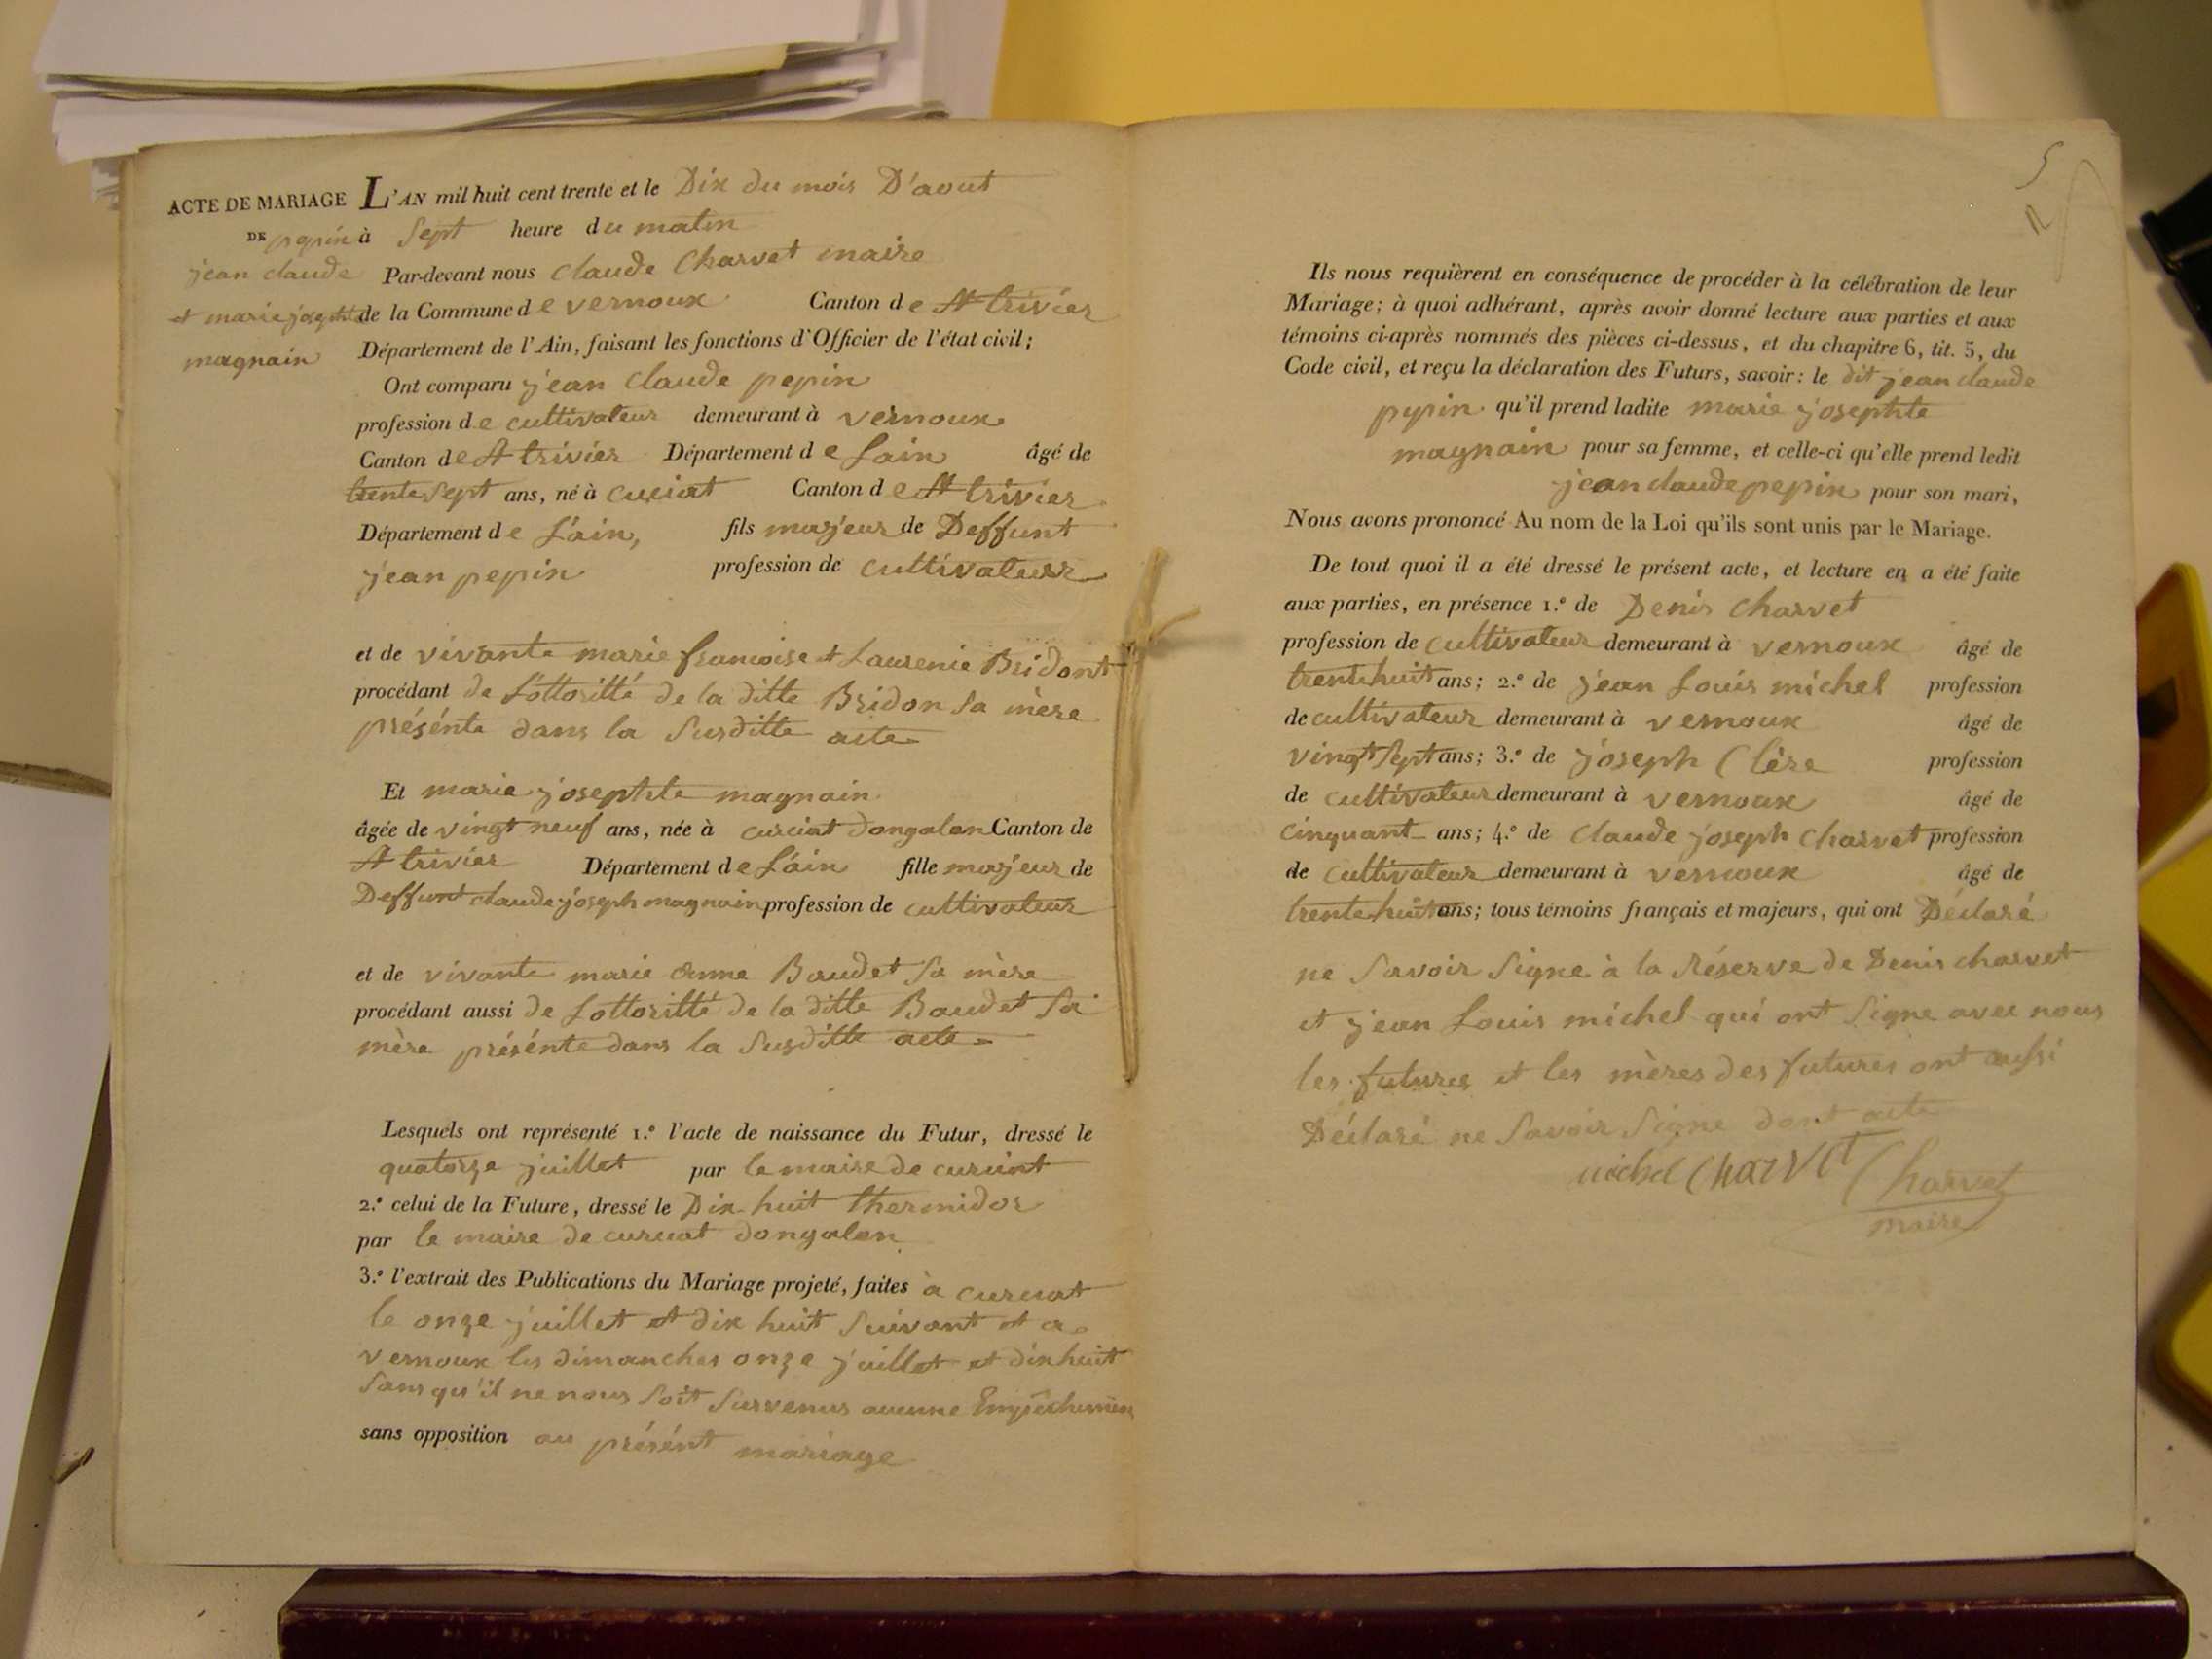 ACTE DE MARIAGE
DE pepin
jean claude
et marie josephte
magnain
L'AN mil huit cent trente et le Dix du mois D'aout
à Sept heure du matin
Par-devant nous Claude Charvet maire
de la Commune de vernoux Canton de St trivier
Département de l'Ain, faisant les fonctions d'Officier de l'état civil;
Ont comparu jean Claude pepin
profession de cultivateur demeurant à vernoux
Canton de St trivier Département de Lain âgé de
trente sept ans, né à curciat Canton de St trivier
Département de L'ain, fils majeur de Deffunt
jean pepin profession de cultivateur
et de vivante marie françoise et Laurenie Bridont
procédant de L'ottoritté de la ditte Bridon Sa mère
présénte dans la Susditte acte
Et marie josephte magnain
âgée de vingt neuf ans, née à curciat dongalon Canton de
St trivier Département de L'ain fille majeur de
Deffunt claude joseph magnain profession de cultivateur
et de vivante marie Anne Baudet Sa mère
procédant aussi de Lottoritté de la ditte Baudet Sa
mère présénte dans la Susditte acte
Lesquels ont représenté 1.º l'acte de naissance du Futur, dressé le
quatorze juillet par le maire de curciat
2.º celui de la Future, dressé le Dix huit thermidor
par le maire de curciat dongalon
3.º l'extrait des Publications du Mariage projeté, faites à curciat
le onze juillet et dix huit Suivant et a
vernoux les dimanches onze juillet et dix huit
Sans qu'il ne nous Soit Survenus aucunne Empêchemen
sans opposition au présént mariage
5
Ils nous requièrent en conséquence de procéder à la célébration de leur
Mariage; à quoi adhérant, après avoir donné lecture aux parties et aux
témoins ci-après nommés des pièces ci-dessus, et du chapitre 6, tit. 5, du
Code civil, et reçu la déclaration des Futurs, savoir: le dit jean claude
pepin qu'il prend ladite marie josephte
magnain pour sa femme, et celle-ci qu'elle prend ledit
jean claude pepin pour son mari,
Nous avons prononcé Au nom de la Loi qu'ils sont unis par le Mariage.
De tout quoi il a été dressé le présent acte, et lecture en a été faite
aux parties, en présence 1.º de Denis Charvet
profession de cultivateur demeurant à vernoux âgé de
trente huit ans; 2.º de jean Louis michel profession
de cultivateur demeurant à vernoux âgé de
vingt Sept ans; 3.º de joseph Clère profession
de cultivateur demeurant à vernoux âgé de
Cinquant ans; 4.º de Claude joseph Charvet profession
de Cultivateur demeurant à vernoux âgé de
trente huit ans; tous témoins français et majeurs, qui ont Déclaré
ne Savoir Signe à la Réserve de Denis charvet
et jean Louis michel qui ont Signe avec nous
les futures et les mères des futures ont aussi
Déclaré ne Savoir Signe dont acte
michel Charvet Charvet
maire